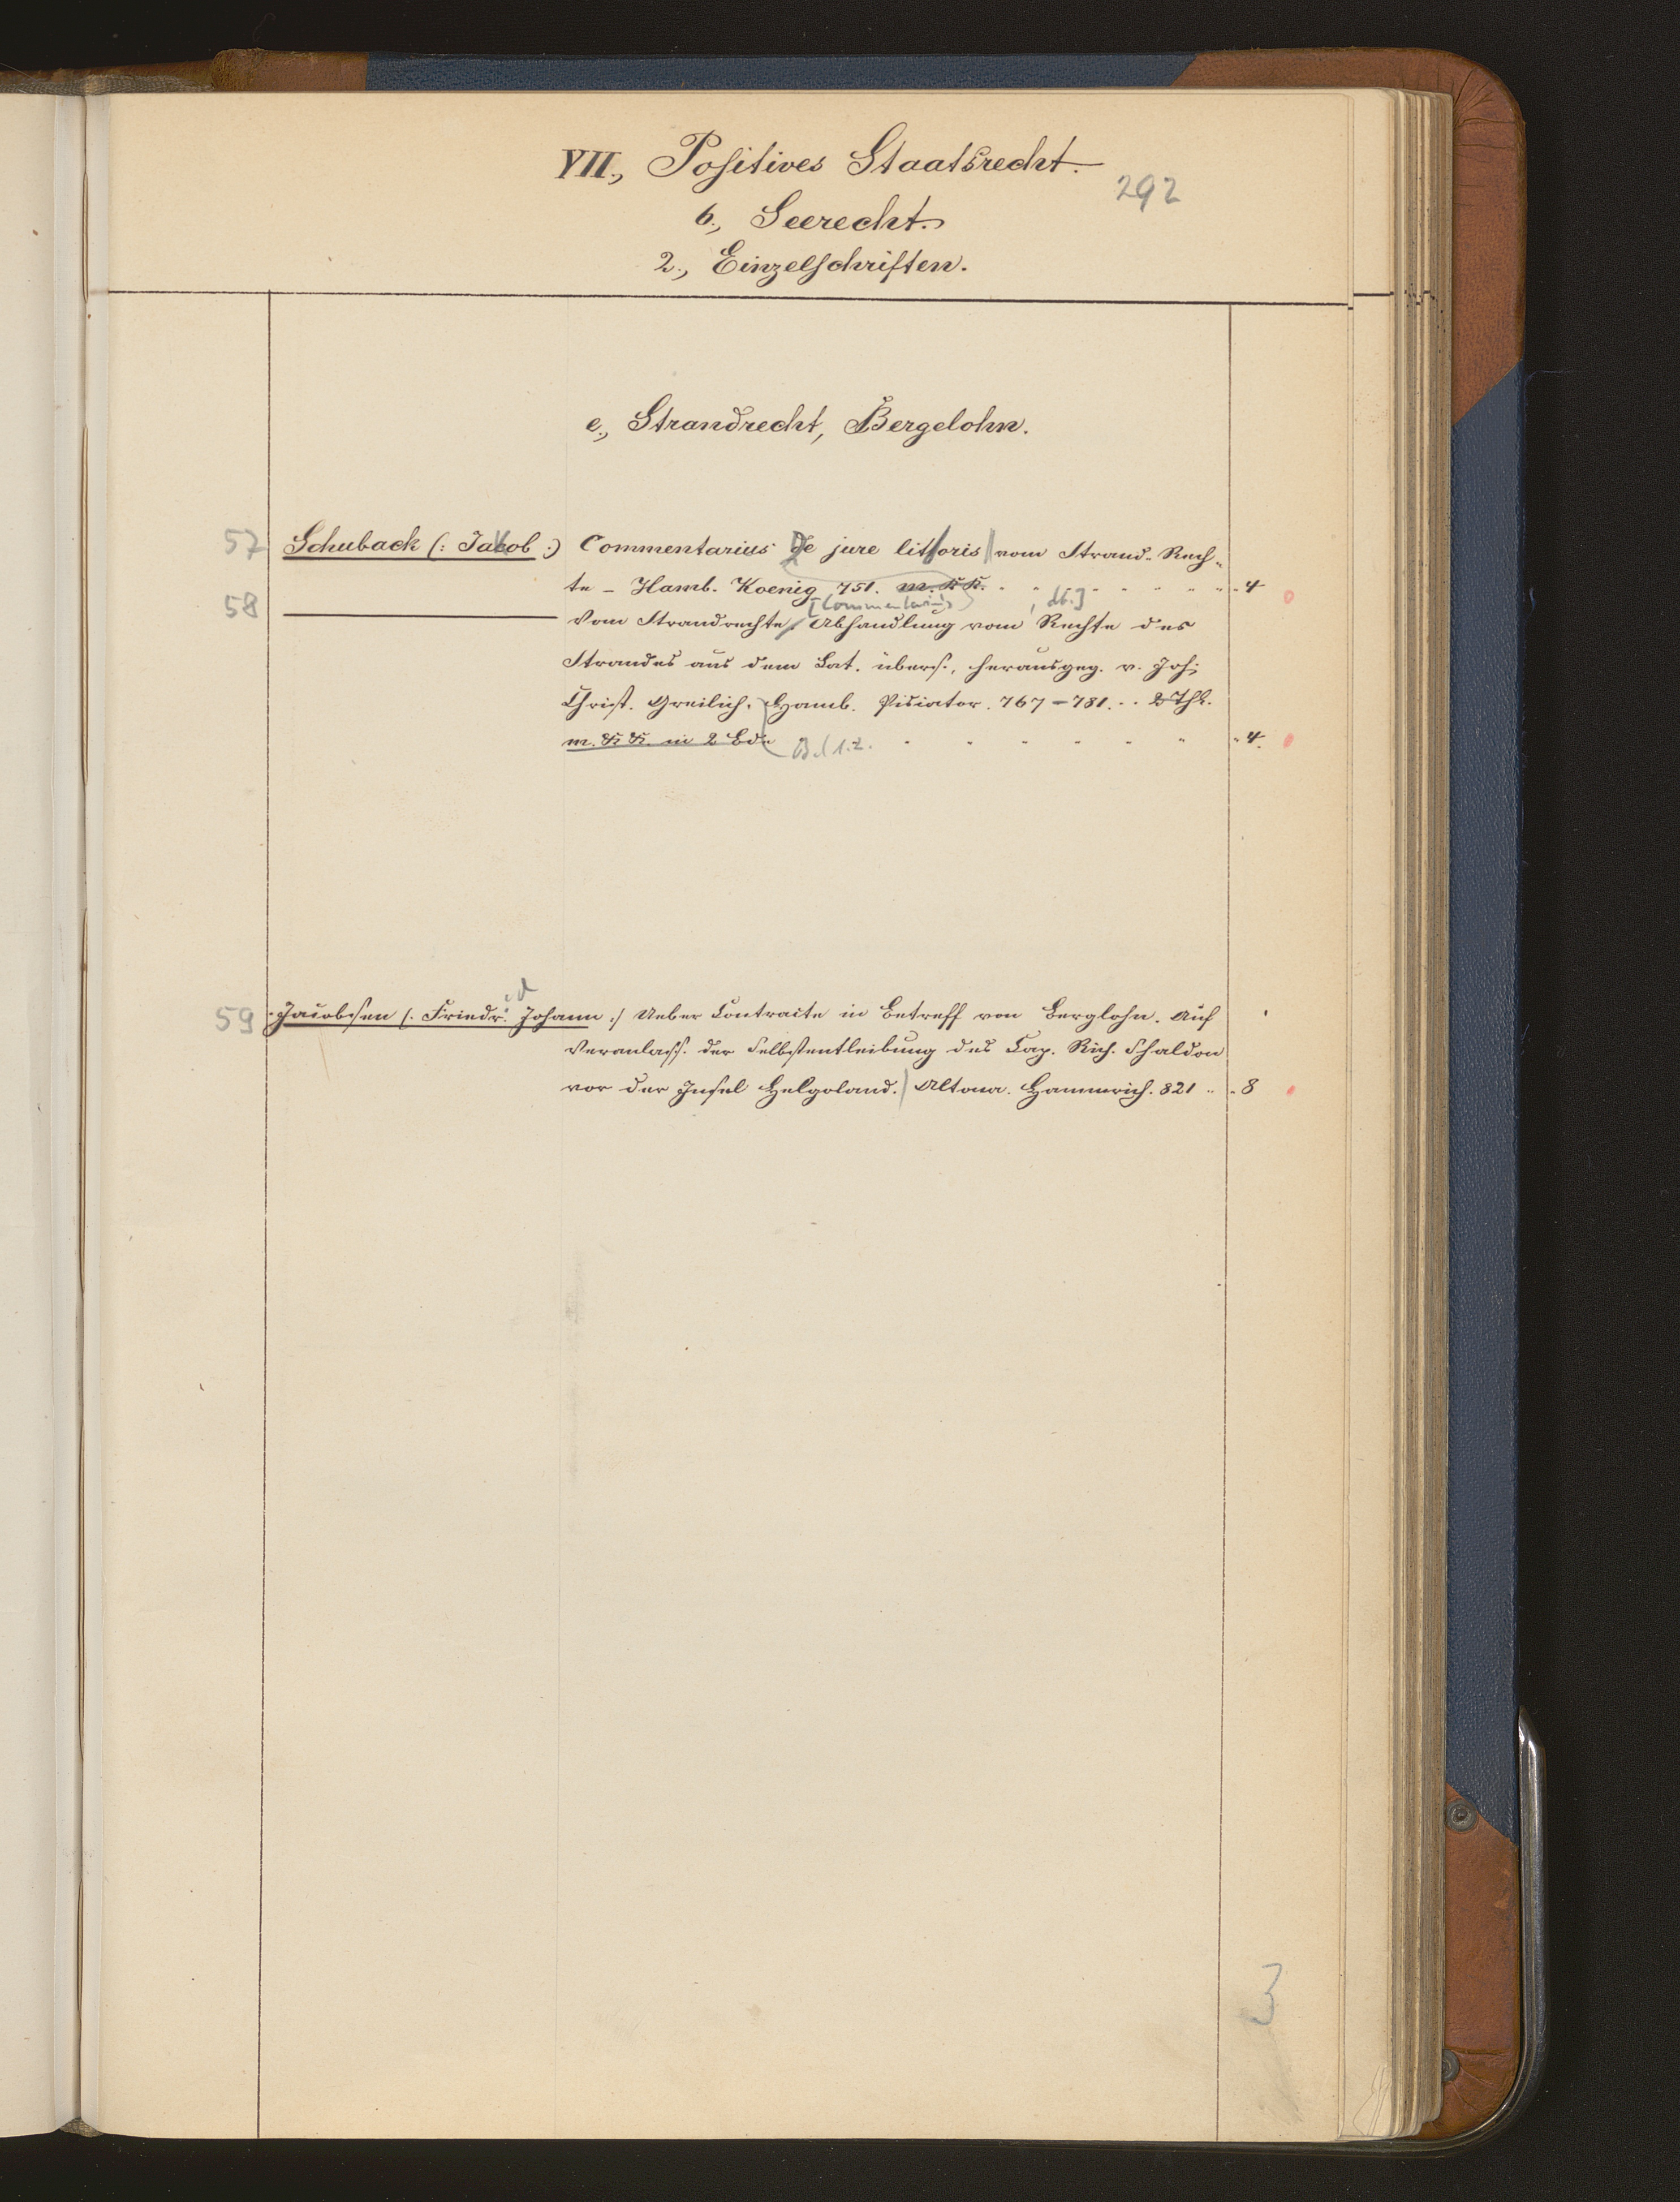 VII., Positives Staatsrecht.
292
6., Seerecht.
2., Einzelschriften.
e., Strandrecht, Bergelohn.
57 Schuback (: Jacob :) Commentarius De jure littoris vom Strand-Rech-
te - Hamb. Koenig 751. m. K K. " 4
[Commentarius , dt.]
58 Vom Strandrechte, Abhandlung vom Rechte des
Strandes aus dem Lat. übers., herausgeg. v. Joh:
Christ. Greilich. Hamb. Pisiator. 767-781. .. 2 Thle.
m. K K. in 2 Bdn Bd 1.2. " 4.
59 Jacobsen (: Friedr. Johann :) Ueber Contracte in Betreff von Berglohn. Auf
Veranlass. der Selbstentleibung des Cap. Rich. Shaldon
vor der Insel Helgoland. Altona. Hammerich. 821 " 8
3